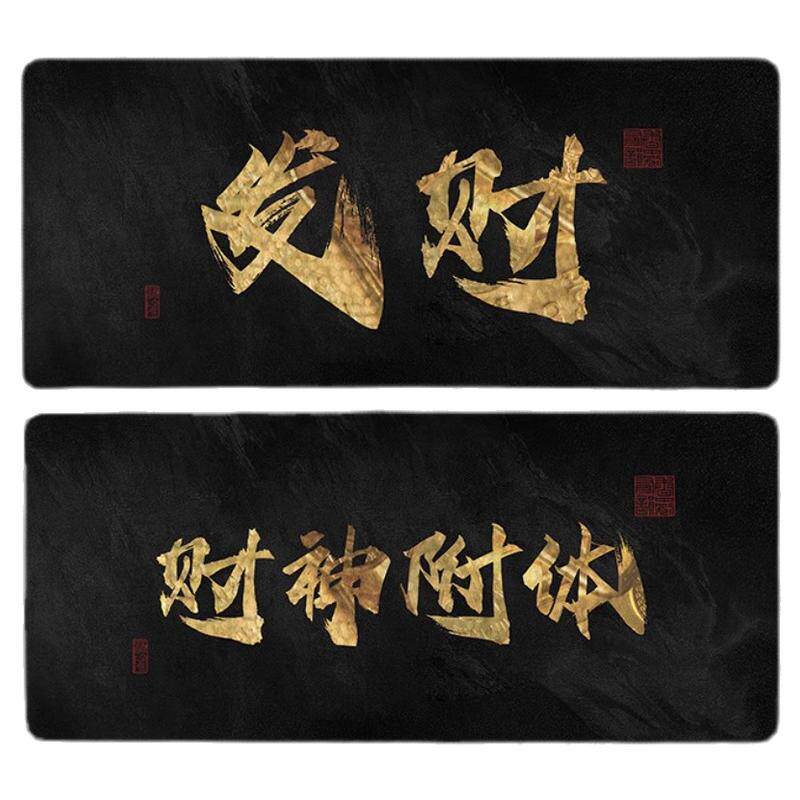 发财
财神附体